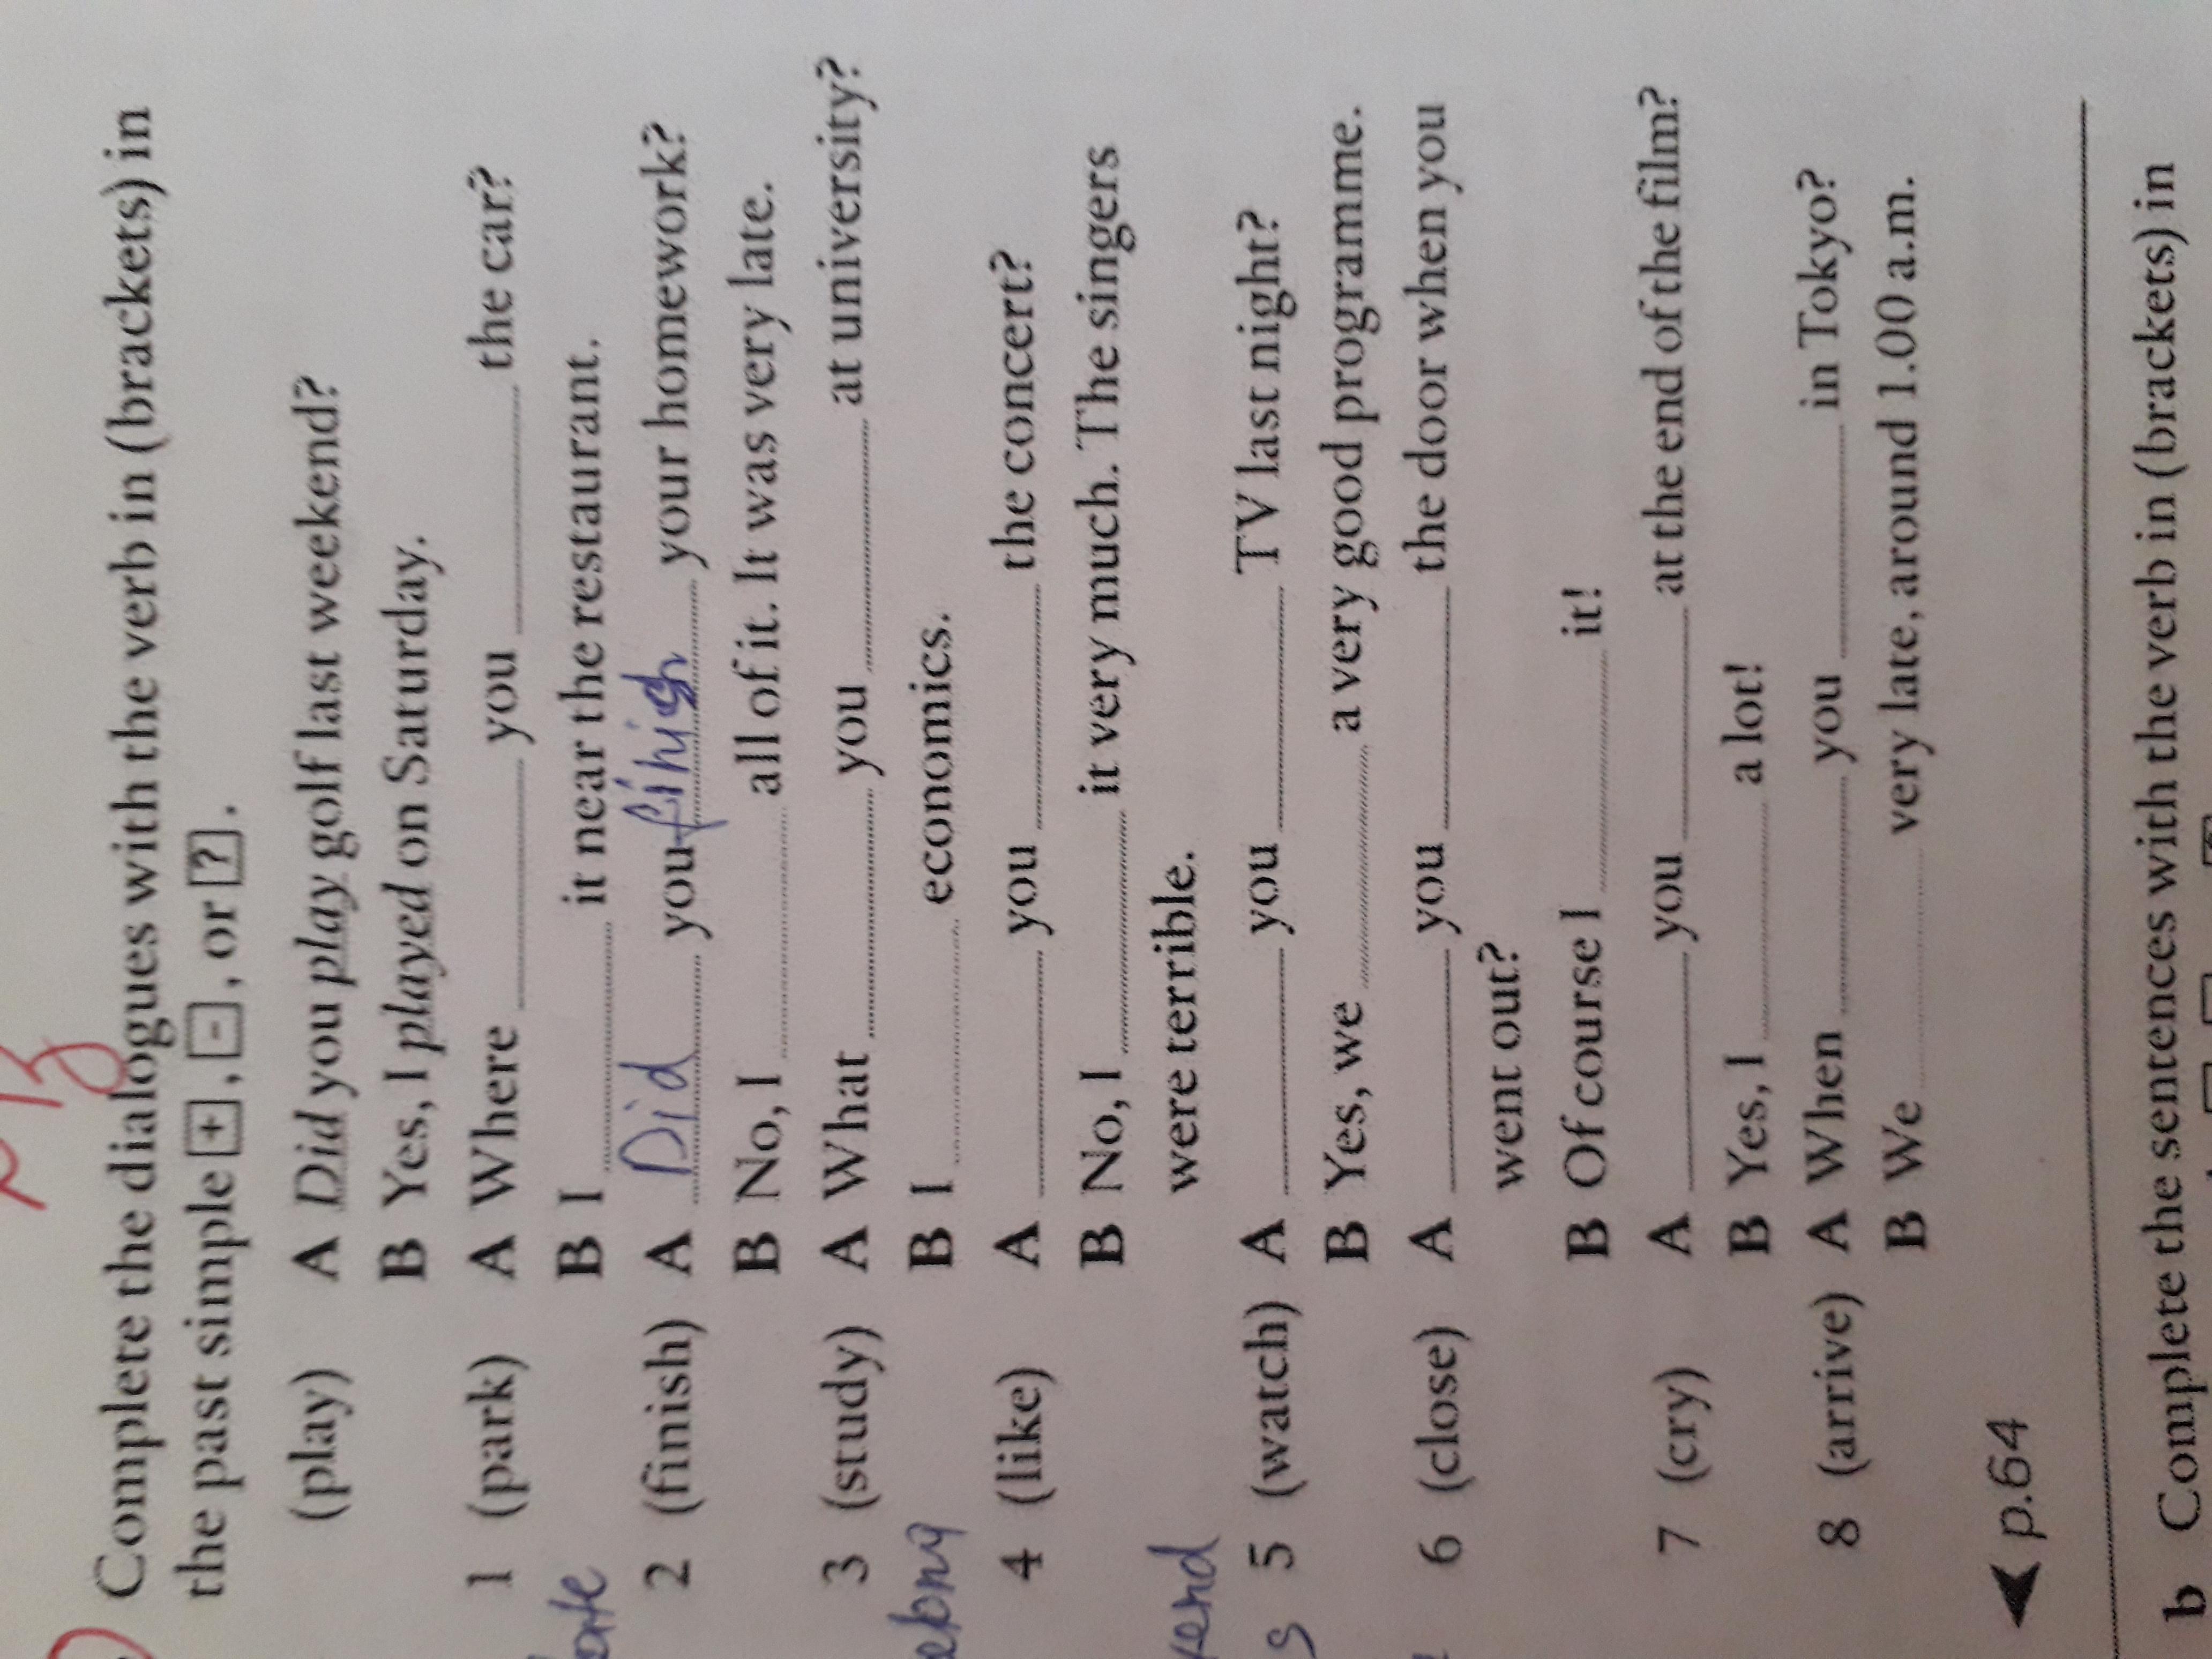 Complete the dialogues with the verb in (brackets) in
the past simple +, -, or ?.
(play) A Did you play golf last weekend?
B Yes, I played on Saturday.
1 (park) A Where ........ you ........ the car?
B I ........ it near the restaurant.
2 (finish) A Did you finish your homework?
B No, I ........ all of it. It was very late.
3 (study) A What ........ you ........ at university?
B I ........ economics.
4 (like) A ........ you ........ the concert?
B No, I ........ it very much. The singers
were terrible.
5 (watch) A ........ you ........ TV last night?
B Yes, we ........ a very good programme.
6 (close) A ........ you ........ the door when you
went out?
B Of course I ........ it!
7 (cry) A ........ you ........ at the end of the film?
B Yes, I ........ a lot!
8 (arrive) A When ........ you ........ in Tokyo?
B We ........ very late, around 1.00 a.m.
p.64
b Complete the sentences with the verb in (brackets) in